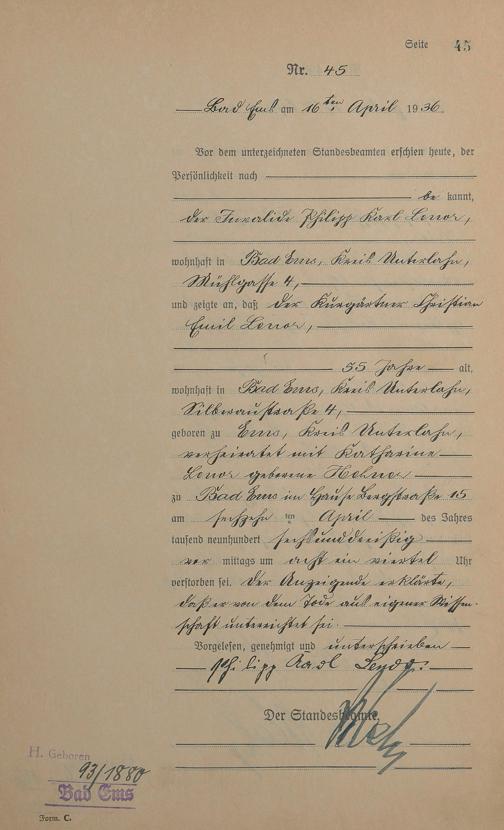 Seite 45
Nr. 45
Bad Ems am 16ten April 1936.
Vor dem unterzeichneten Standesbeamten erschien heute, der
Persönlichkeit nach
be kannt,
der Invalide Philipp Karl Lenor,
wohnhaft in Bad Ems, Kreis Unterlahn,
Mühlgasse 4,
und zeigte an, daß der Kurgärtner Christian
Emil Lenor,
55 Jahre alt,
wohnhaft in Bad Ems, Kreis Unterlahn,
Silberaustraße 4,
geboren zu Ems, Kreis Unterlahn,
verheiratet mit Katharine
Lenor geborene
zu Bad Ems im Hause Bergstraße 15
am sechzehn ten April des Jahres
tausend neunhundert sechsunddreißig
vor mittags um acht ein viertel Uhr
verstorben sei. Der Anzeigende erklärte,
daß er von dem Tode aus eigener Wissen-
schaft unterrichtet sei.
Vorgelesen, genehmigt und unterschrieben
Philipp Karl
Der Standesbeamte.
H. Geboren
93/1880
Bad Ems
Form. C.